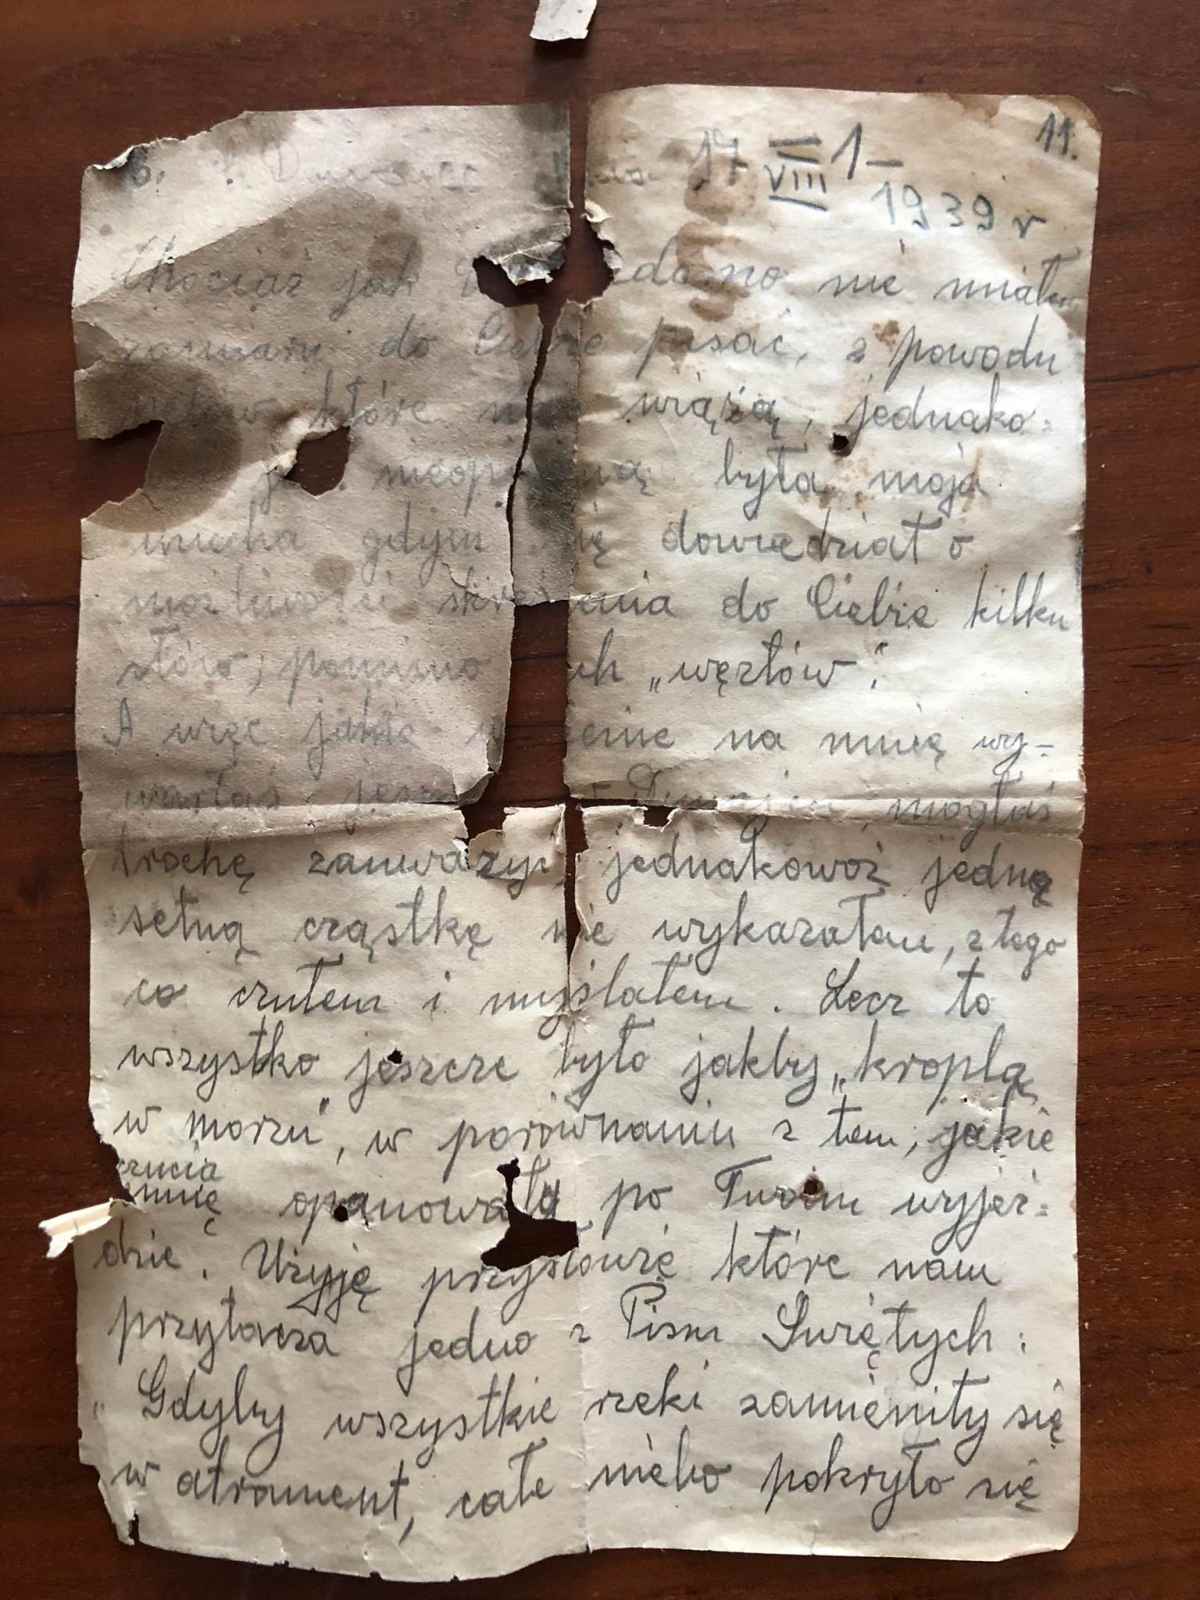 11.
17 VIII 1-
1939 r
Chociaż jak domo nie miałem
zamiaru do Ciebie pisać, z powodu
które wiążą, jednako=
była moja
uciecha gdym się dowiedział o
możliwości skreślenia do Ciebie kilku
słów, pomimo ch „węzłów".
A więc jakie na mnie wy=
warłaś mogłaś
trochę zauważyć, jednakowoż jedną
setną cząstkę nie wykazałem, z tego
co czułem i myślałem. Lecz to
wszystko jeszcze było jakby „kroplą
w morzu", w porównaniu z tem, jakie
czucia
mnię opanowały po Twem wyjeź=
dzie. Użyję przysłowie które nam
przytacza jedno z Pism Świętych:
„Gdyby wszystkie rzeki zamieniły się
w atrament, całe niebo pokryło się